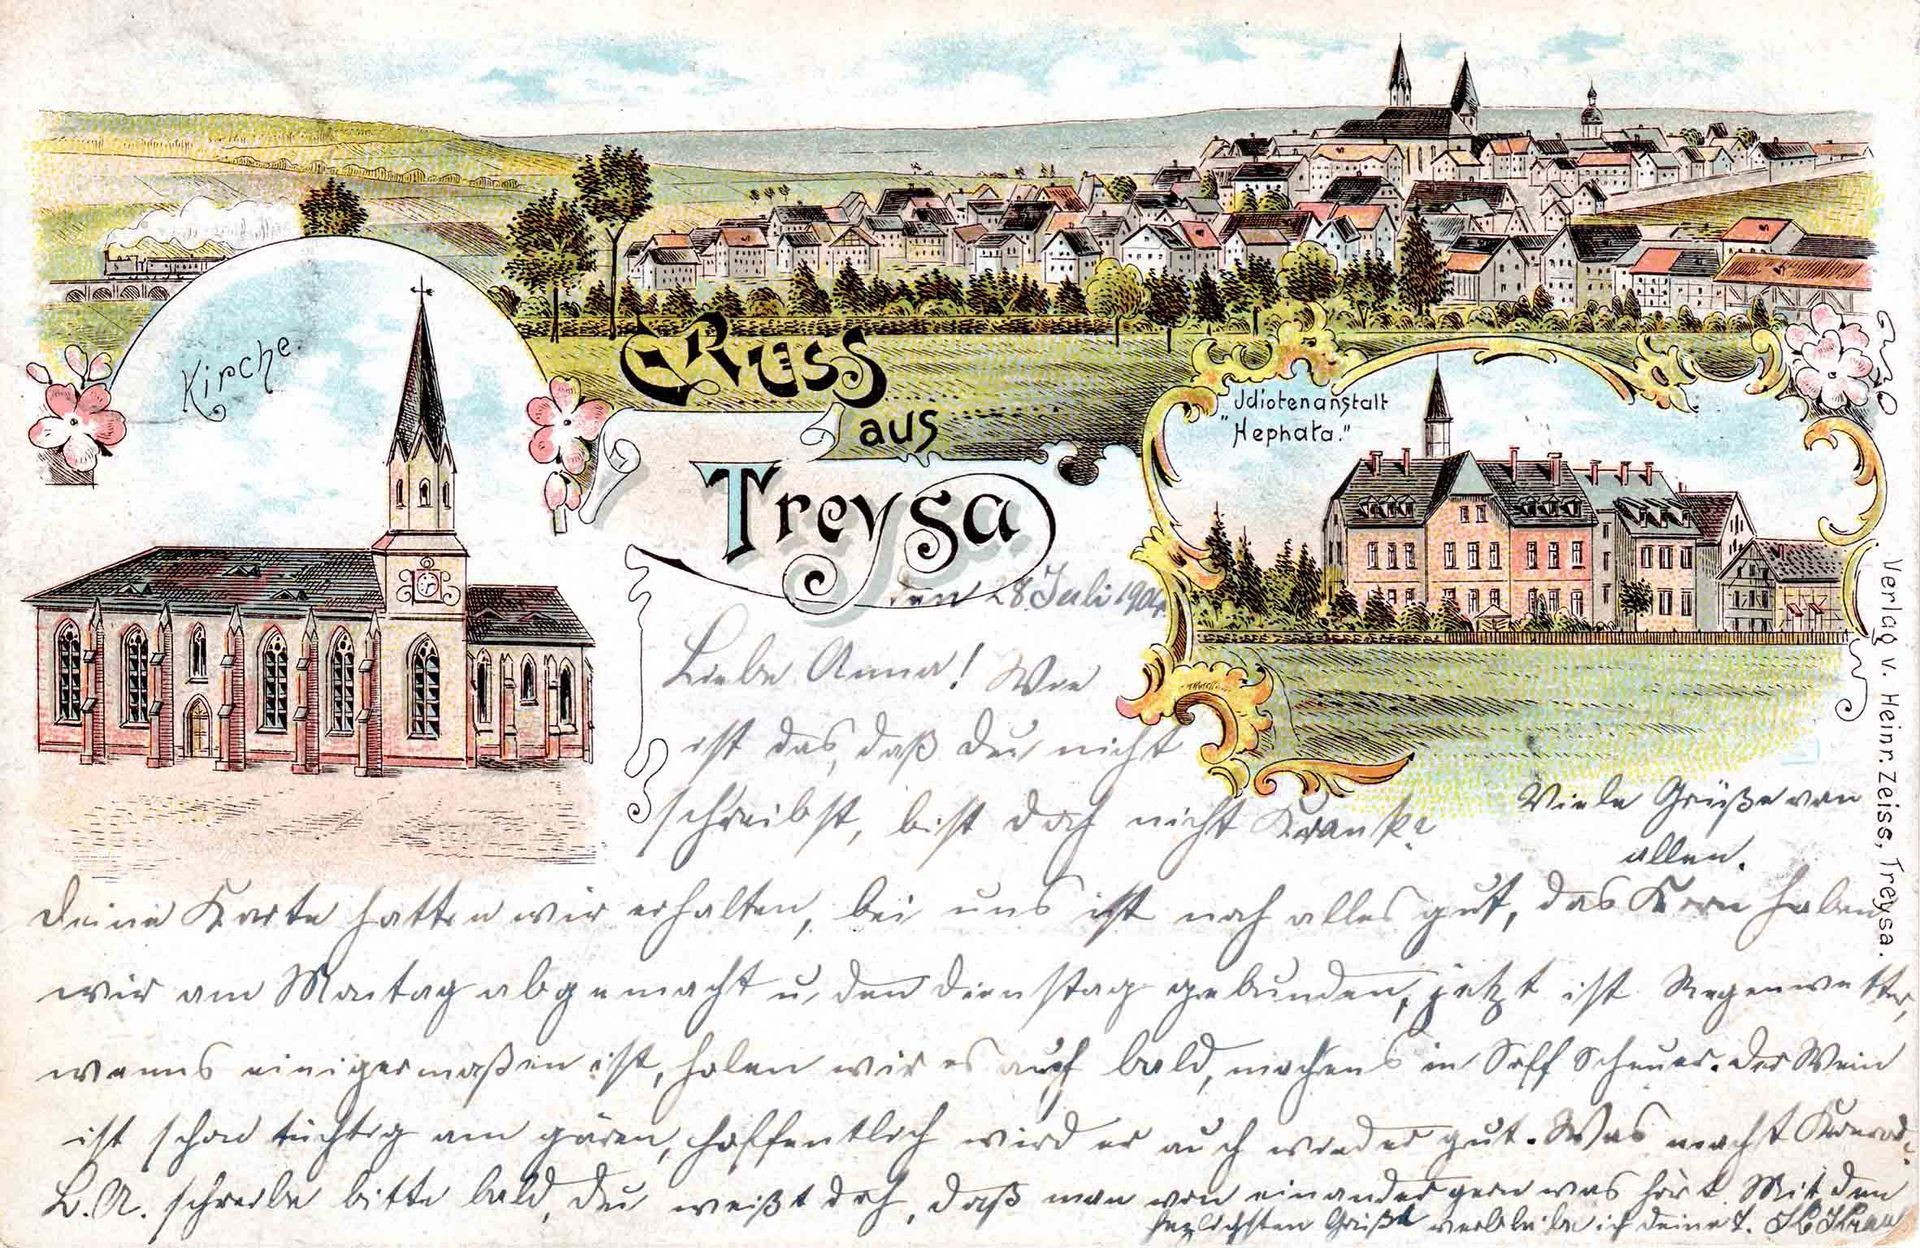 Kirche.
Gruss
aus
Treysa.
Idiotenanstalt
"Hephata."
Verlag v. Heinr. Zeiss, Treysa.
den 28. Juli 1904.
Liebe Anna! Wie
ist das, daß Du nicht
schreibst, bist doch nicht Krank?
Viele Grüße von
allen.
Deine Karte hatten wir erhalten, bei uns ist noch alles gut, das Korn haben
wir am Montag abgemacht u. den Dienstag gebunden, jetzt ist Regenwetter,
wenns einigermaßen ist, holen wir es auch bald, machens in Scheuer. Der Wein
ist schon tüchtig am gären, hoffentlich wird er auch wieder gut. Was macht Konrad?
L. A. schreibe bitte bald, Du weißt doch, daß man von einander gern was hört. Mit den
herzlichsten Grüßen verbleibe ich deine